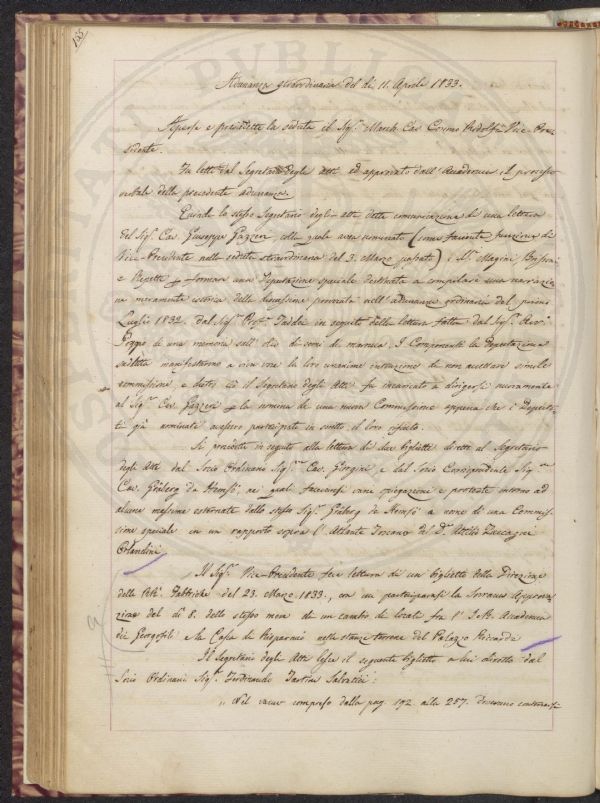 155
Adunanza straordinaria del dì 11. Aprile 1833.
Aperse e presedette la seduta il Sig.r March. Cav. Cosimo Ridolfi Vice-Pre-
sidente.
Fu letto dal Segretario degli Atti ed approvato dall'Accademia il processo
verbale della precedente adunanza.
Quindi lo stesso Segretario degli Atti dette comunicazione di una lettera
del Sig.r Cav. Giuseppe Gazzeri, colla quale avea nominato (come facente funzione di
Vice-Presidente nella seduta straordinaria del 3. Marzo passato) i SS.ri Magini
e Repetti a formare una Deputazione speciale destinata a compilare una narrazio
ne meramente istorica della discussione provocata nell'adunanza ordinaria del primo
Luglio 1832. dal Sig.r Prof.r Taddei in seguito della lettura fatta dal Sig.r
di una memoria sull'olio di semi di I Componenti la Deputazione
suddetta manifestarono a viva voce la loro unanime intenzione di non accettare simile
commissione, e dietro ciò il Segretario degli Atti fu incaricato a dirigersi nuovamente
al Sig.r Cav. Gazzeri la nomina di una nuova Commissione appena che i Deputa
ti già nominati avessero partecipato in scritto il loro rifiuto.
Si procedette in seguito alla lettura di due biglietti diretti al Segretario
degli Atti dal Socio Ordinario Sig.r Cav. Giorgini e dal Socio Corrispondente Sig.r
Cav. Gräberg da Hemsö, ne' quali facevansi varie spiegazioni e proteste intorno ad
alcune massime esternate dallo stesso Sig.r Gräberg da Hemsö a nome di una Commis-
sione speciale in un rapporto sopra l'Atlante Toscano del D.r Attilio Zuccagni
Orlandini
Il Sig.r Vice-Presidente fece lettura di un biglietto della Direzione
delle RR. Fabbriche del 23. Marzo 1833., con cui partecipavasi la Sovrana Approva-
zione del dì 8. dello stesso mese di un cambio di locali fra l'I. e R. Accademia
dei Georgofili e la Cassa di Risparmio nelle stanze terrene del Palazzo Riccardi
Il Segretario degli Atti lesse il seguente biglietto a lui diretto dal
Socio Ordinario Sig.r Ferdinando Tartini Salvatici:
„ Nel vacuo compreso dalla pag. 192. alla 257. dovranno